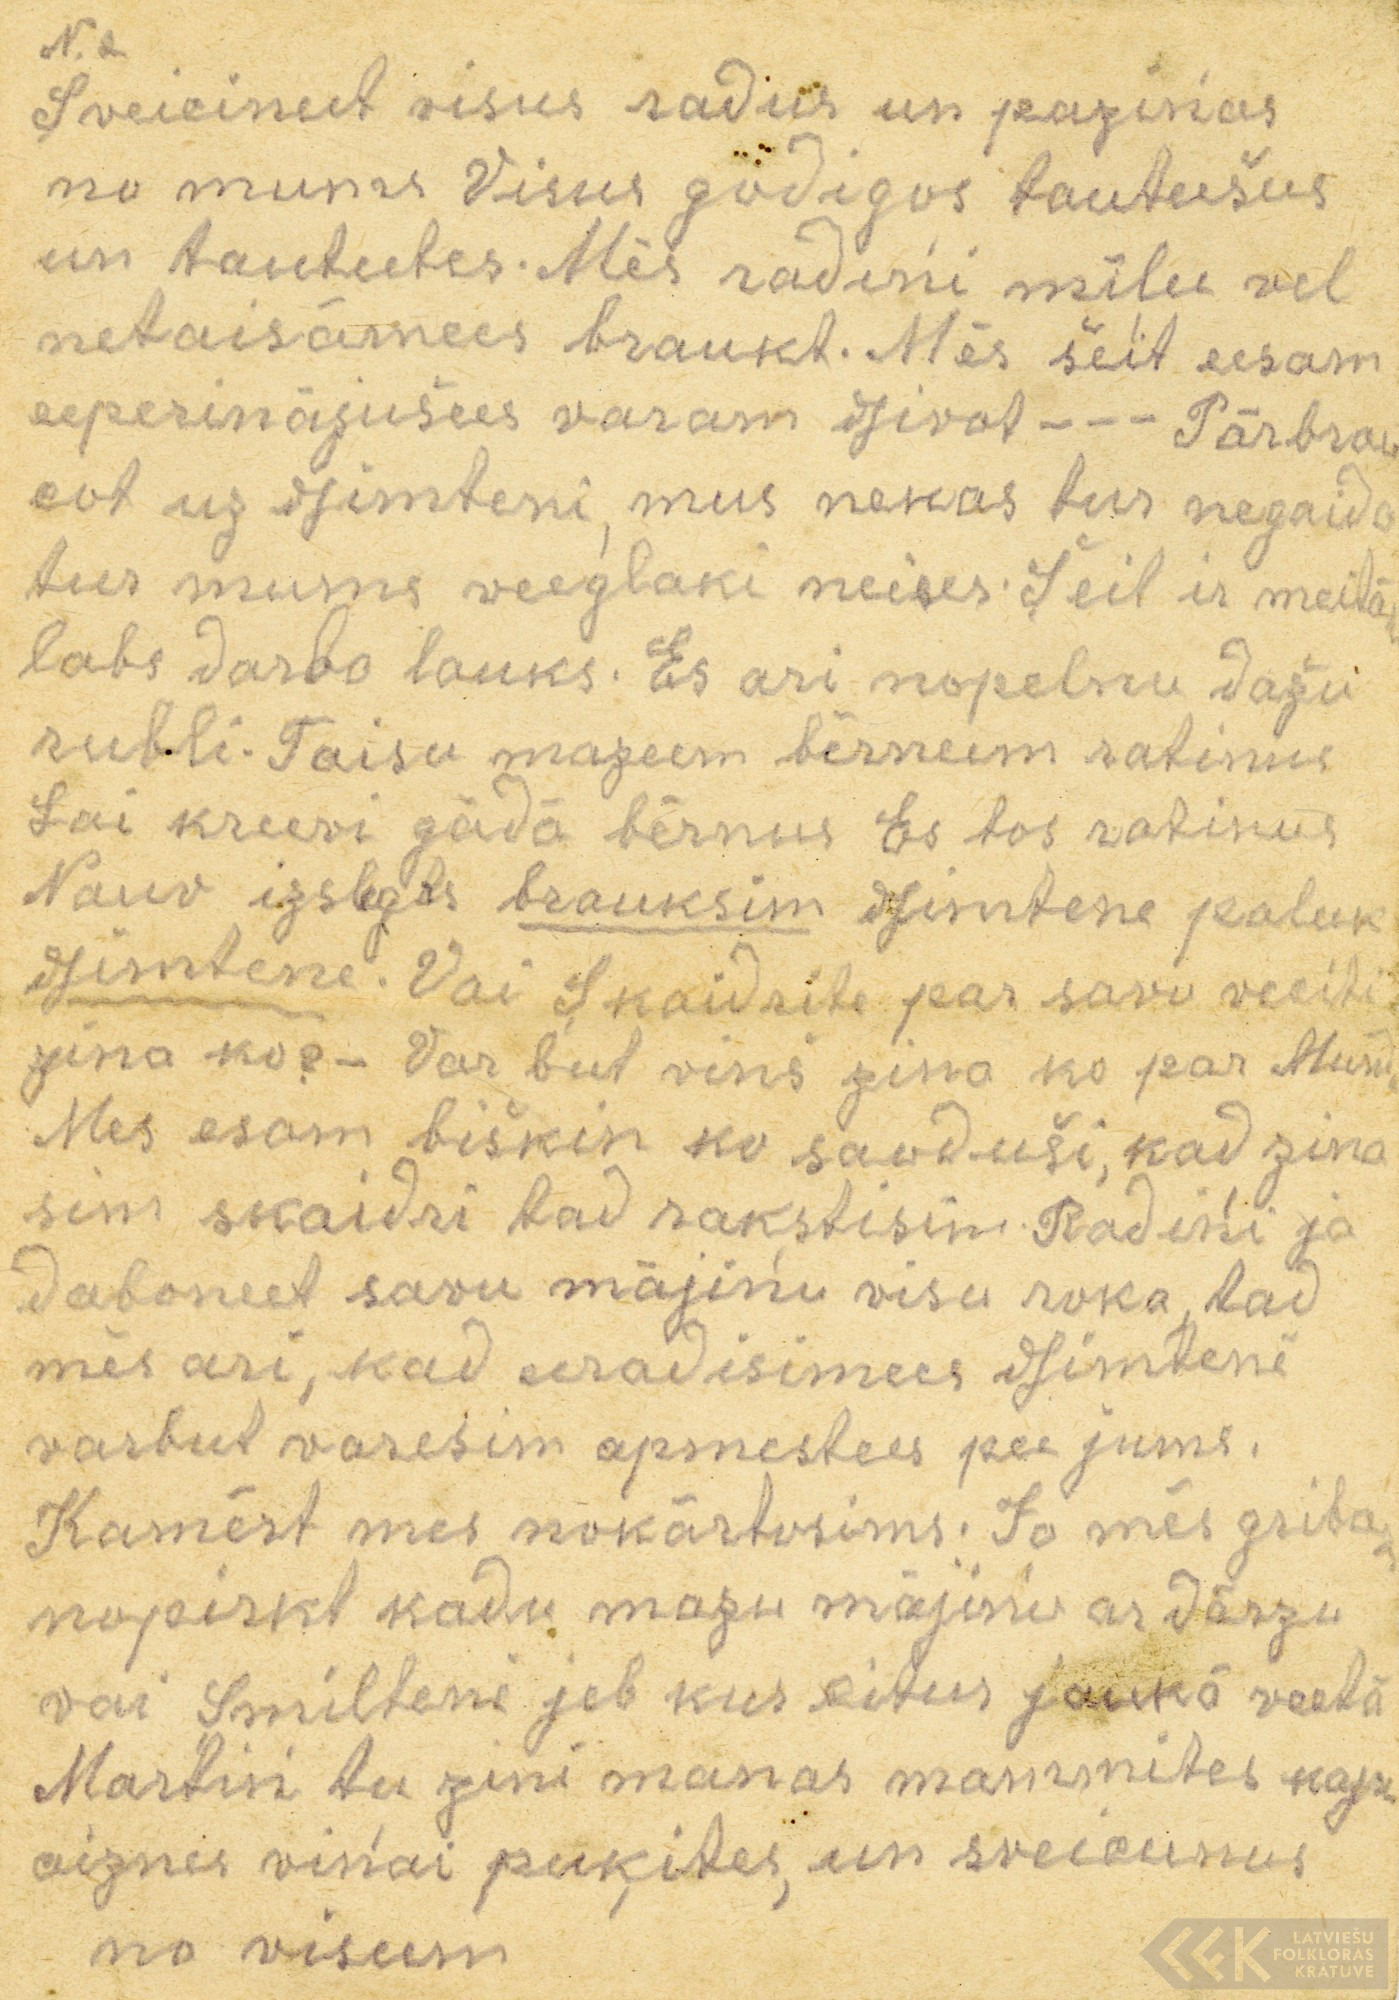 N. 2
Sveicineet visus radus un paziņas
no mums Visus godigos tauteešus
un tauteetes. Mēs radiņi mīlee vel
netaisāmees braukt. Mēs šeit eesam
eeperinājušees varam dsivot --- Pārbrau
cot uz dsimteni, mus nekas tur negaida
tur mums veeglaki neises. Šeit ir meitām
labs darba lauks. Es ari nopelnu dažu
rubli. Taisu mazeem bērneem ratiņus
Lai kreevi gādā bērnus Es tos ratinus
Nauv izslēgts brauksim dsimtene paleek
dsimtene. Vai Skaidrite par savu veciti
zina ko? - Var but viņš zina ko par
Mes esam bišķin ko saoduši, kad zina
sim skaidri tad rakstisim. Radiņi ja
daboneet savu mājiņu visu roka, tad
mēs ari, kad eeradisimees dsimtenē
varbut varesim apmestees pee jums.
Kamērt mes nokārtosims. Jo mēs gribam
nopirkt kadu mazu mājiņu ar dārzu
vai Smiltenē jeb kur citur jaukā veetā
Martiņ tu zini manas mammites kapu
aiznes viņai puķites, un sveicunus
no viseem
LATVIEŠU
FOLKLORAS
KRĀTUVE